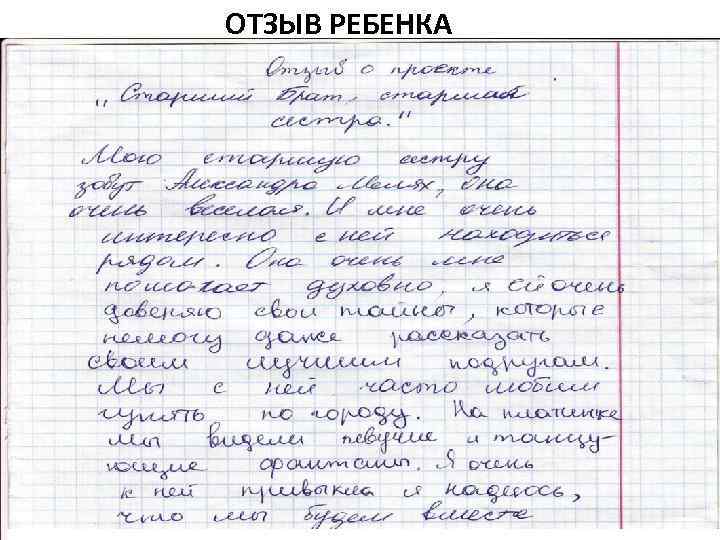 ОТЗЫВ РЕБЕНКА
Отзыв о проекте
"Старший брат, старшая
сестра."
Мою старшую сестру
зовут Александра Мелях, она
очень веселая. И мне очень
интересно с ней находиться
рядом. Она очень мне
помогает духовно, я ей очень
доверяю свои тайны, которые
немогу даже рассказать
своим лучшим подругам.
Мы с ней часто любим
гулять по городу. На платинке
мы видели певучие и танцу-
ющие фонтаны. Я очень
к ней привыкла и надеюсь,
что мы будем вместе